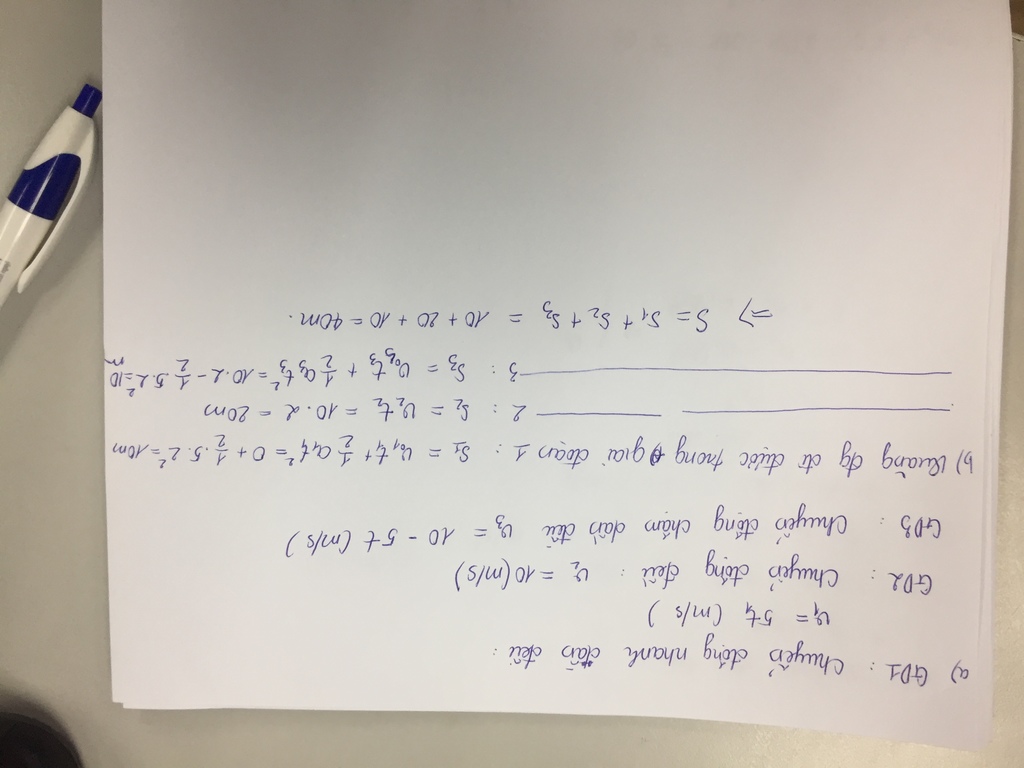 a) GĐ1 : Chuyển động nhanh dần đều :
v₁ = 5t₁ (m/s)
GĐ2 : Chuyển động đều : v₂ = 10 (m/s)
GĐ3 : Chuyển động chậm dần đều v₃ = 10 - 5t (m/s)
b) Quãng đg đi được trong giai đoạn 1 : S₁ = v₀₁t₁ + 1/2 a₁t₁² = 0 + 1/2 . 5 . 2² = 10m
2 : S₂ = v₂t₂ = 10 . 2 = 20m
3 : S₃ = v₀₃t₃ + 1/2 a₃t₃² = 10 . 2 - 1/2 5 . 2² = 10 m
=> S = S₁ + S₂ + S₃ = 10 + 20 + 10 = 40m .